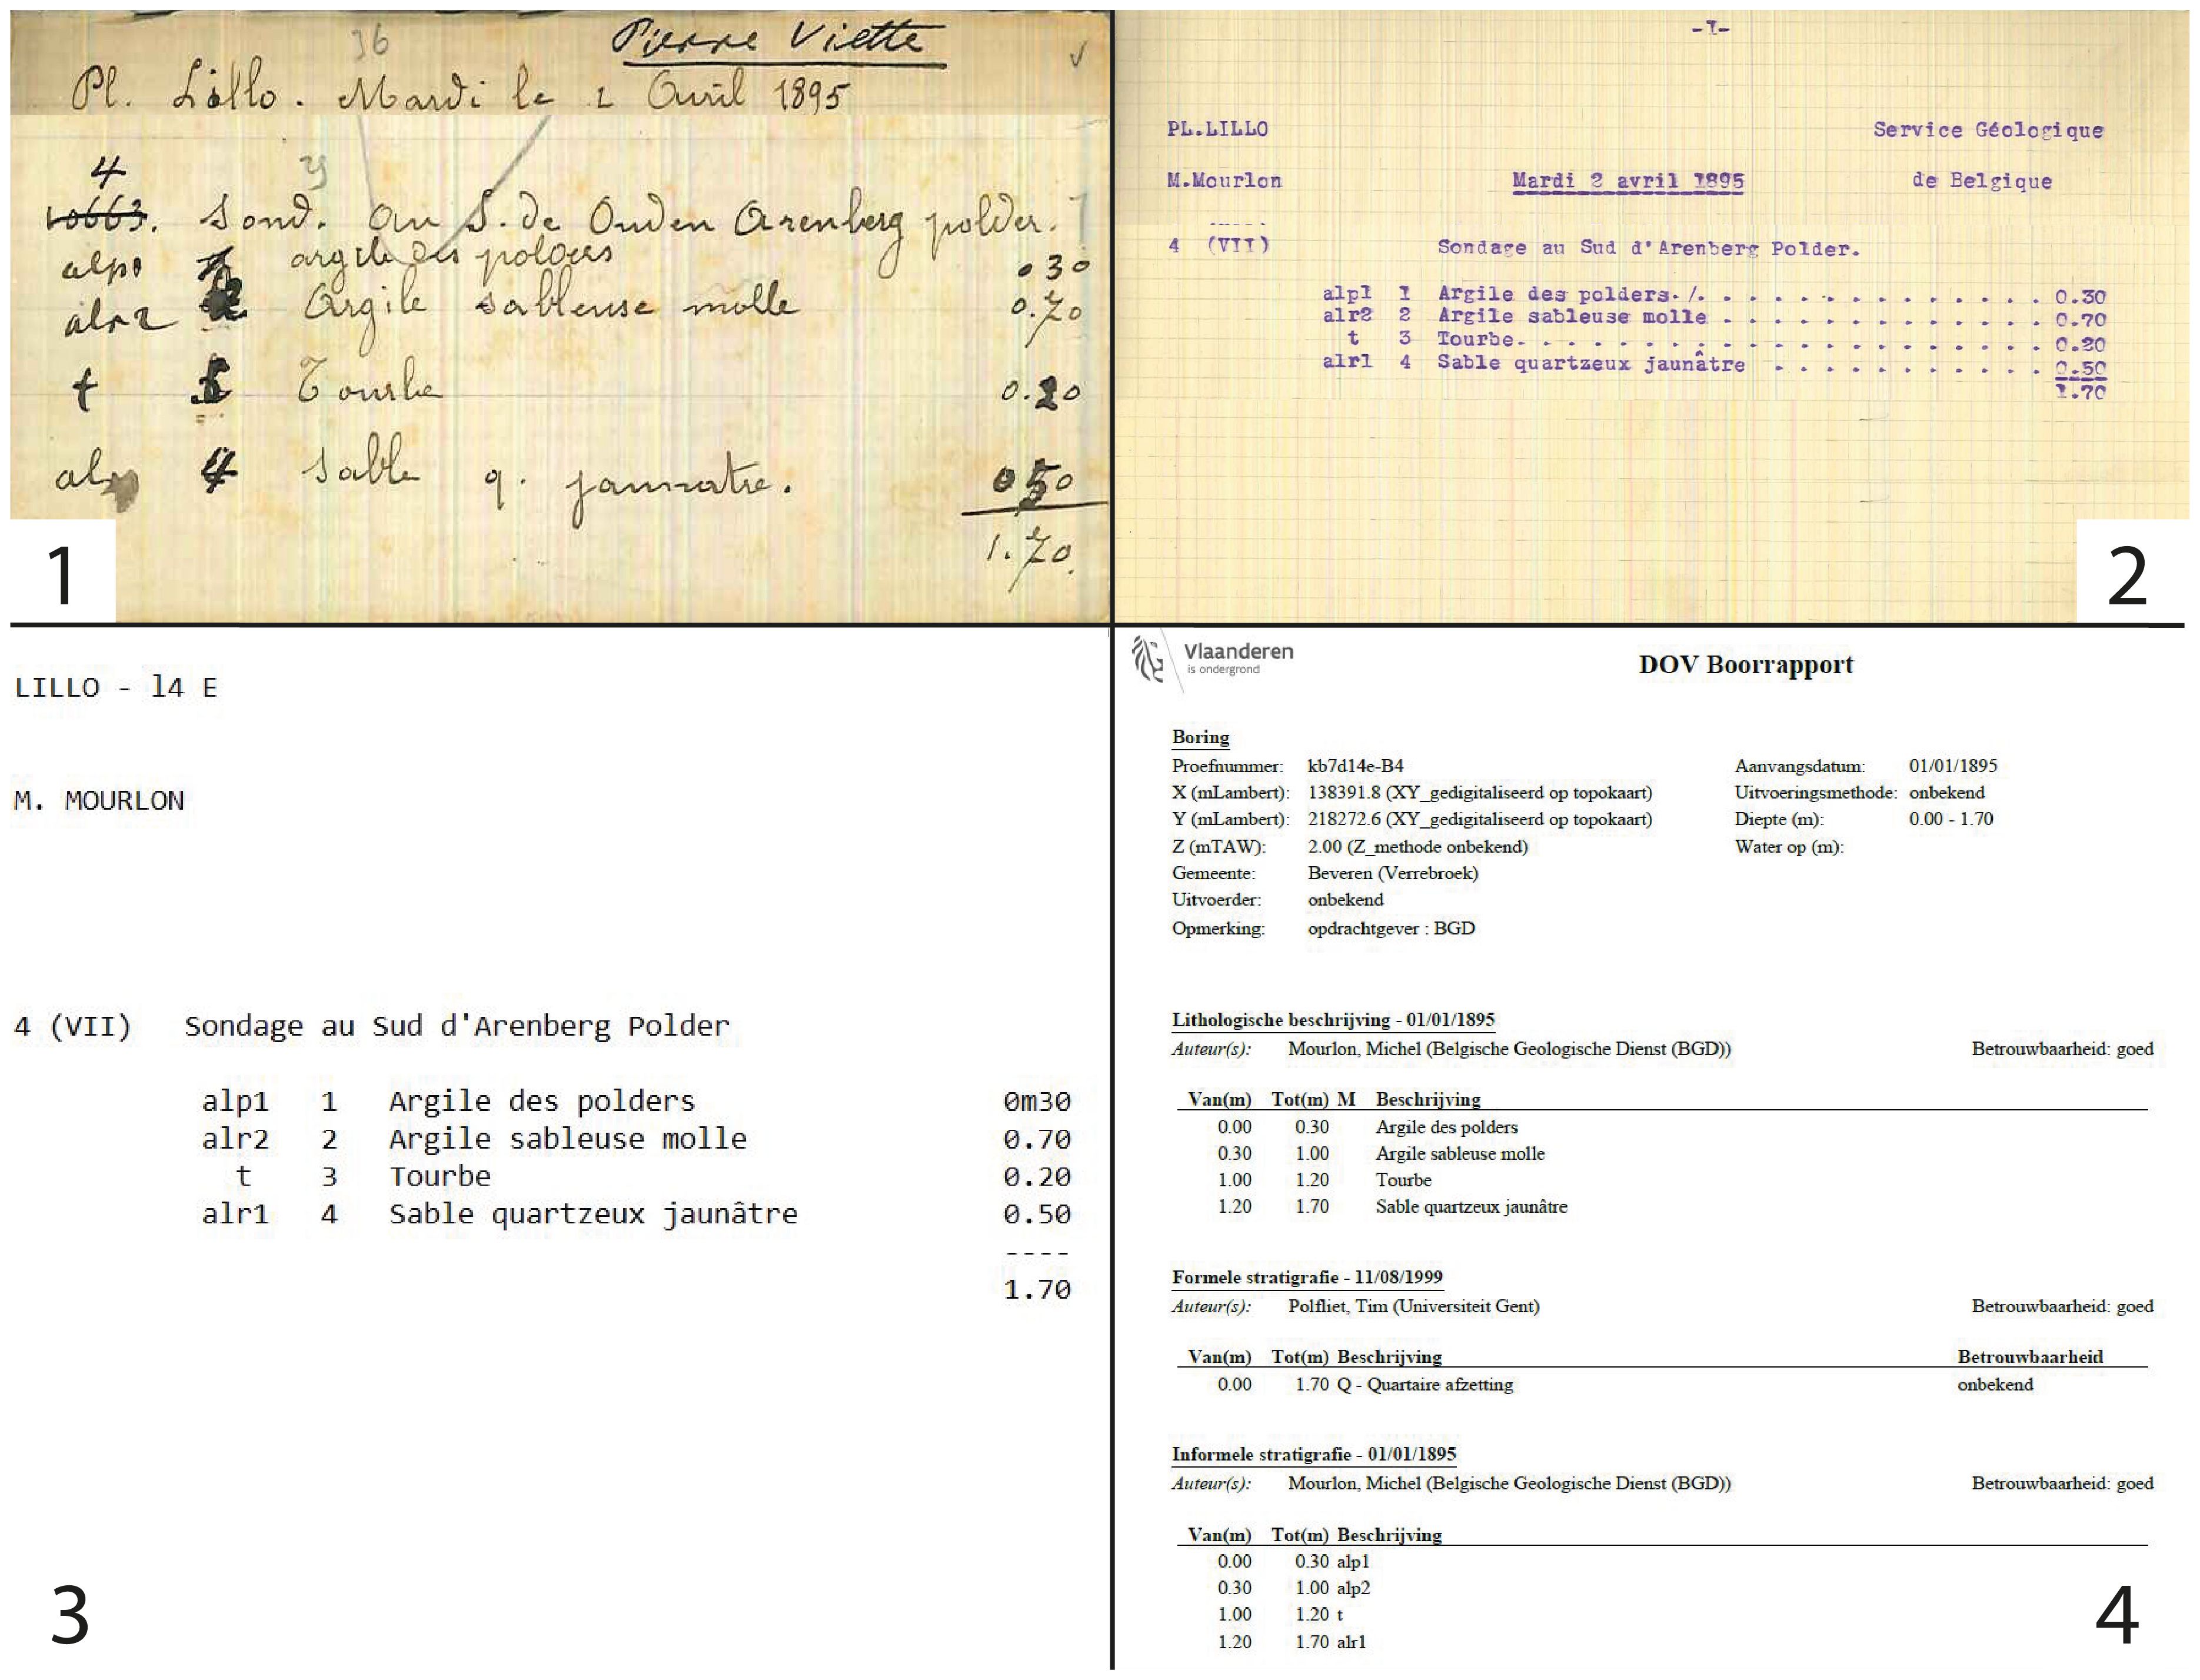 36
Pierre Viette
Pl. Lillo. Mardi le 2 Avril 1895
4
10663. Sond. au S. de Ouden Arenberg polder.
alp1 argile des polders 0.30
alr2 2 Argile sableuse molle 0.70
t Tourbe 0.20
4 Sable q. jaunatre. 0.50
1.70
1
-I-
PL.LILLO Service Géologique
M.Mourlon Mardi 2 avril 1895 de Belgique
4 (VII) Sondage au Sud d'Arenberg Polder.
alp1 1 Argile des polders. /. . . . . . . . . . . . . . . 0.30
alr2 2 Argile sableuse molle . . . . . . . . . . . . . 0.70
t 3 Tourbe. . . . . . . . . . . . . . . . . . . . . 0.20
alr1 4 Sable quartzeux jaunâtre . . . . . . . . . . . 0.50
1.70
2
LILLO - 14 E
M. MOURLON
4 (VII) Sondage au Sud d'Arenberg Polder
alp1 1 Argile des polders 0m30
alr2 2 Argile sableuse molle 0.70
t 3 Tourbe 0.20
alr1 4 Sable quartzeux jaunâtre 0.50
----
1.70
3
Vlaanderen
is ondergrond
DOV Boorrapport
Boring
Proefnummer: kb7d14e-B4 Aanvangsdatum: 01/01/1895
X (mLambert): 138391.8 (XY_gedigitaliseerd op topokaart) Uitvoeringsmethode: onbekend
Y (mLambert): 218272.6 (XY_gedigitaliseerd op topokaart) Diepte (m): 0.00 - 1.70
Z (mTAW): 2.00 (Z_methode onbekend) Water op (m):
Gemeente: Beveren (Verrebroek)
Uitvoerder: onbekend
Opmerking: opdrachtgever : BGD
Lithologische beschrijving - 01/01/1895
Auteur(s): Mourlon, Michel (Belgische Geologische Dienst (BGD)) Betrouwbaarheid: goed
Van(m) Tot(m) M Beschrijving
0.00 0.30 Argile des polders
0.30 1.00 Argile sableuse molle
1.00 1.20 Tourbe
1.20 1.70 Sable quartzeux jaunâtre
Formele stratigrafie - 11/08/1999
Auteur(s): Polfliet, Tim (Universiteit Gent) Betrouwbaarheid: goed
Van(m) Tot(m) Beschrijving Betrouwbaarheid
0.00 1.70 Q - Quartaire afzetting onbekend
Informele stratigrafie - 01/01/1895
Auteur(s): Mourlon, Michel (Belgische Geologische Dienst (BGD)) Betrouwbaarheid: goed
Van(m) Tot(m) Beschrijving
0.00 0.30 alp1
0.30 1.00 alp2
1.00 1.20 t
1.20 1.70 alr1
4